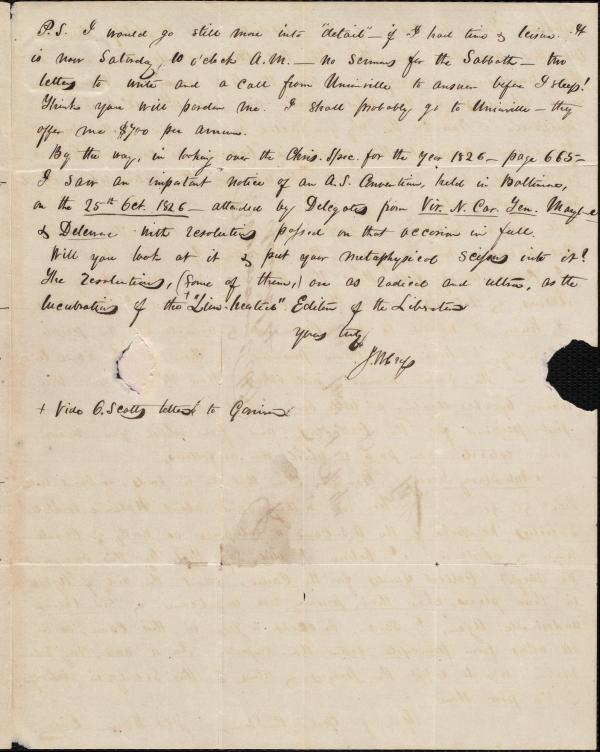 P.S. I would go still more into "detail" — if I had time & leisure. It
is now Saturday, 10 o'clock A.M. — no sermons for the Sabbath — two
letters to write and a call from Unionville to answer before I sleep!
Think you will pardon me. I shall probably go to Unionville — they
offer me $700 per annum.
By the way, in looking over the Chris. Spec. for the year 1826 — page 665 —
I saw an important notice of an A.S. Convention, held in Baltimore,
on the 25th Oct. 1826 — attended by Delegates from Vir. N. Car. Ten. Maryland
& Delaware with resolutions passed on that occasion in full.
Will you look at it & put your metaphysical scissors into it?
The resolutions, (some of them,) are as radical and ultra, as the
lucubrations of the + "Line-heated" Editor of the Liberator
Yours truly
+ Vide O. Scott's letter to Garrison